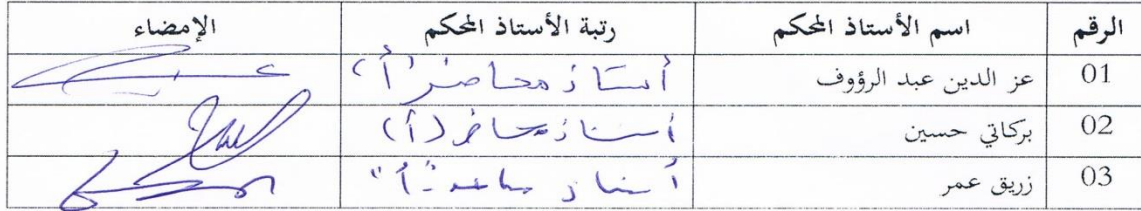 الرقم اسم الأستاذ المحكم رتبة الأستاذ المحكم الإمضاء
01 عز الدين عبد الرؤوف أستاذ محاضر "أ"
02 بركاتي حسين أستاذ محاضر (أ)
03 زريق عمر أستاذ مساعد "أ"